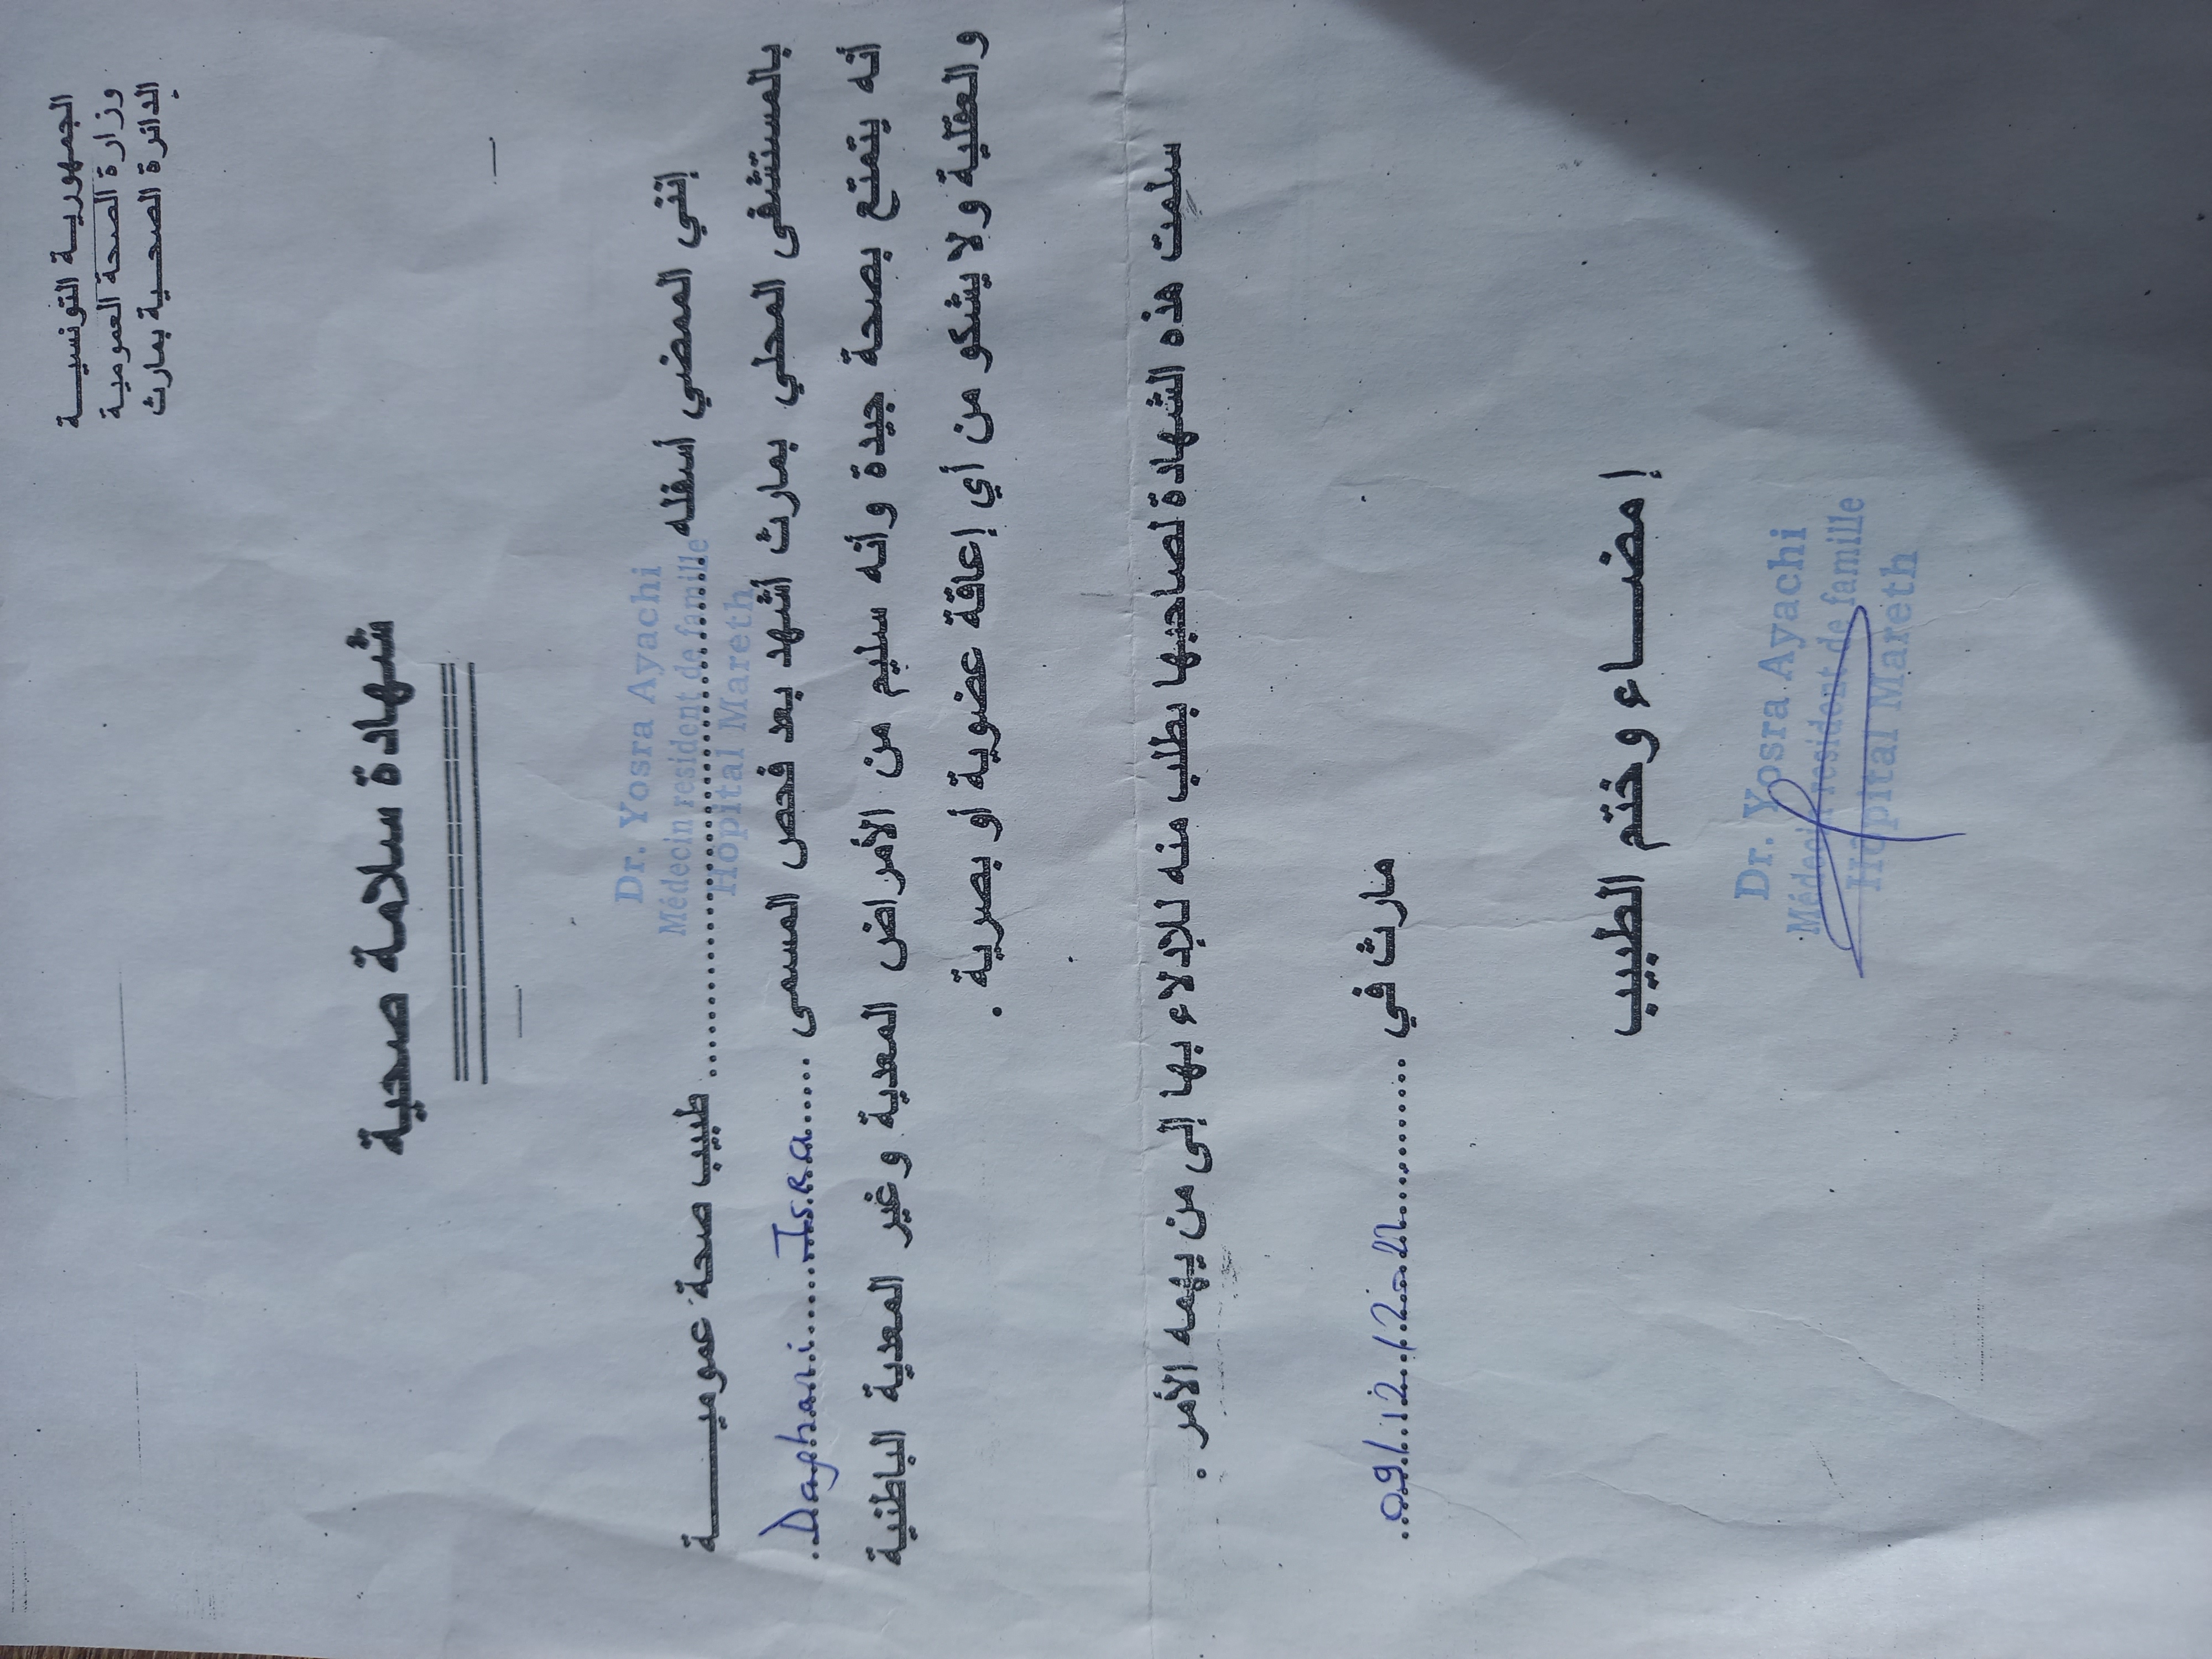 الجمهورية التونسية
وزارة الصحة العمومية
الدائرة الصحية بمارث
شهادة سلامة صحية
Dr. Yosra Ayachi
Médecin resident de famille
Hopital Mareth
إنني الممضي أسفله ........ طبيب صحة عمومية
بالمستشفى المحلي بمارث أشهد بعد فحص المسمى ...... Daghani Isra ......
أنه يتمتع بصحة جيدة وأنه سليم من الأمراض المعدية وغير المعدية الباطنية
والعقلية ولا يشكو من أي إعاقة عضوية أو بصرية .
سلمت هذه الشهادة لصاحبها بطلب منه للإدلاء بها إلى من يهمه الأمر .
مارث في ........ 09/12/2021 ........
إمضاء وختم الطبيب
Dr. Yosra Ayachi
Médecin resident de famille
Hopital Mareth